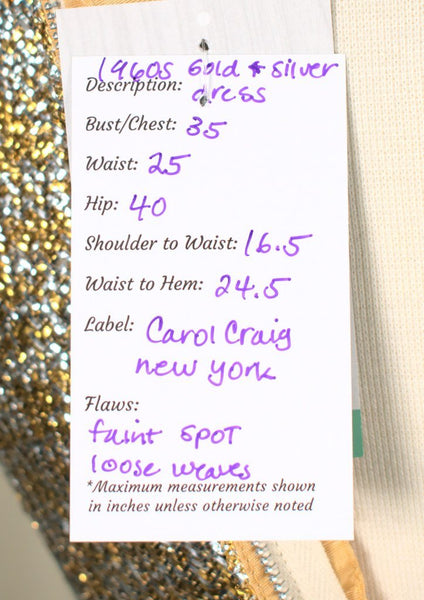 1960s Gold & Silver
Description: dress
Bust/Chest: 35
Waist: 25
Hip: 40
Shoulder to Waist: 16.5
Waist to Hem: 24.5
Label: Carol Craig
new york
Flaws:
faint spot
loose weaves
*Maximum measurements shown
in inches unless otherwise noted